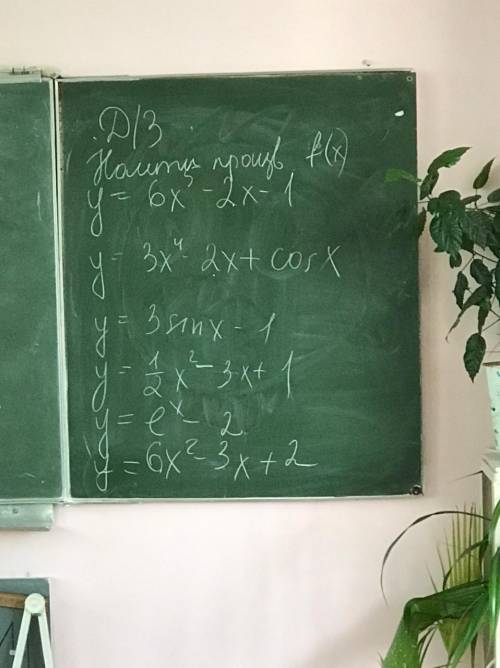 Д/З
Найти произв f(x)
y = 6x⁵ - 2x - 1
y = 3x⁴ - 2x + cosx
y = 3sinx - 1
y = 1/2 x² - 3x + 1
y = eˣ - 2
y = 6x² - 3x + 2